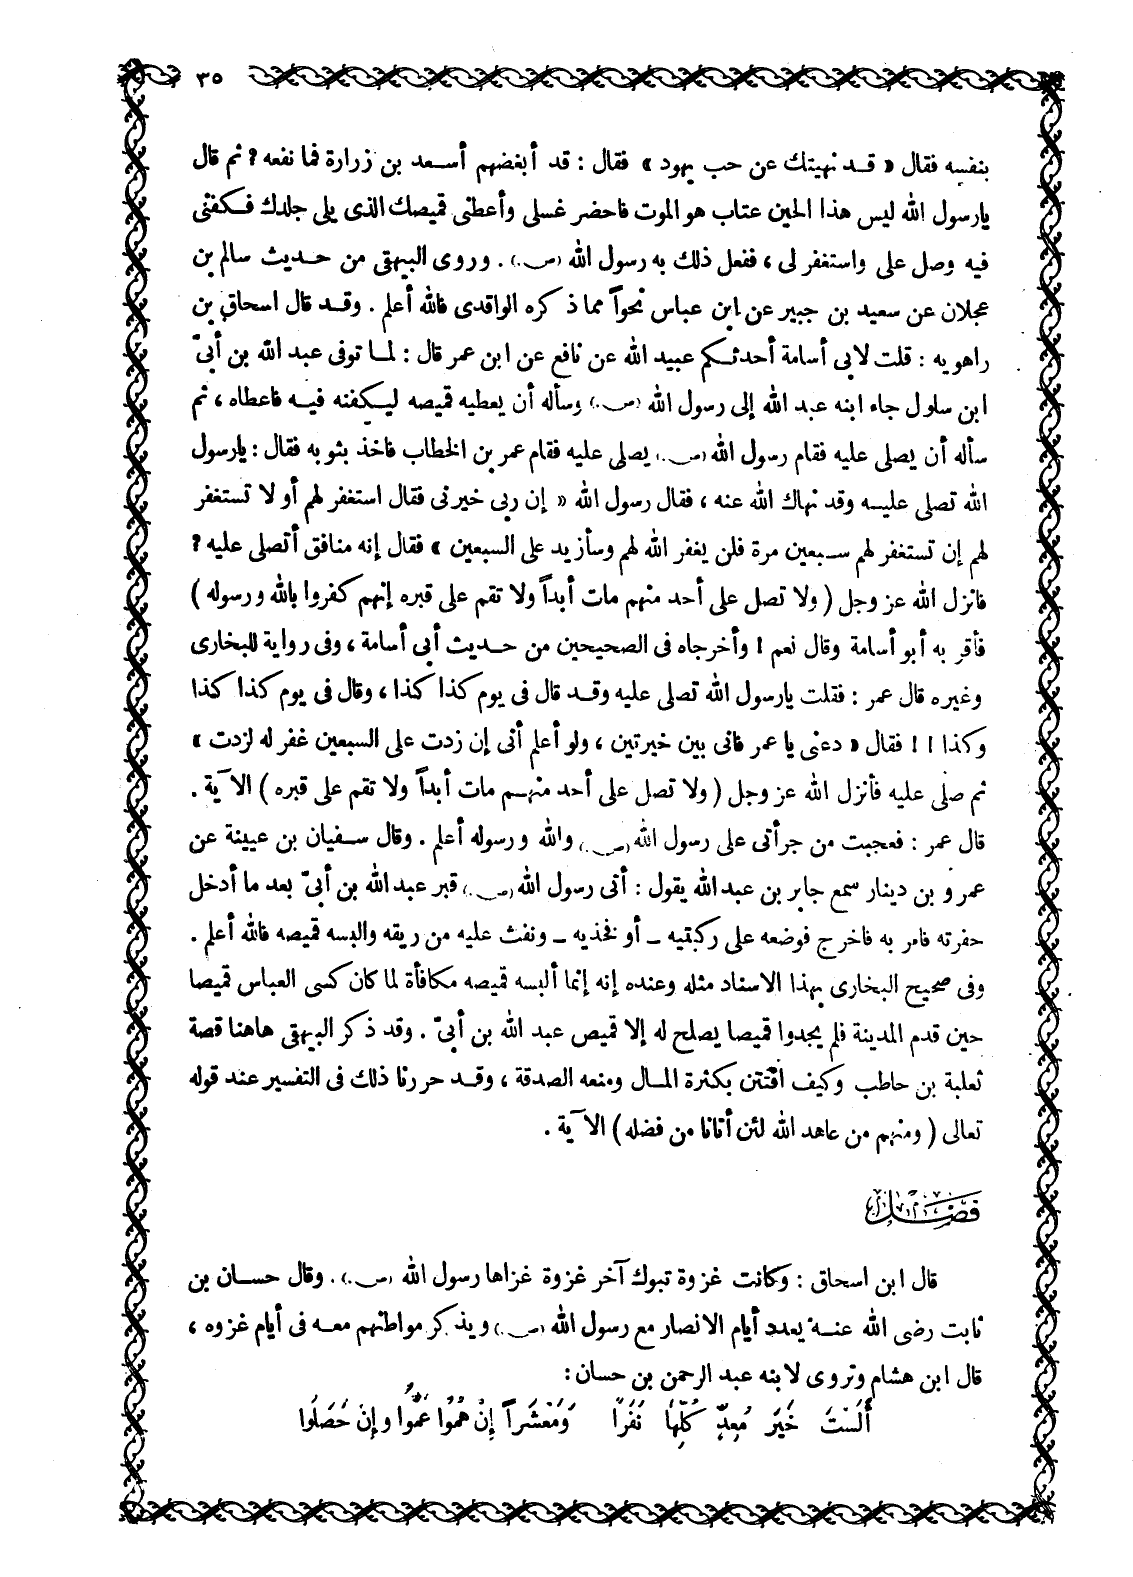 ٣٥
بنفسه فقال « قـد نهيتك عن حب يهود » فقال : قد أبغضهم أسـعد بن زرارة فما نفعه ? ثم قال
يارسول الله ليس هذا الحين عتاب هو الموت فاحضر غسلى وأعطنى قميصك الذى يلى جلدك فـكفنى
فيه وصل على واستغفر لى ، ففعل ذلك به رسول الله (ص) . وروى البيهقى من حـديث سالم بن
عجلان عن سعيد بن جبير عن ابن عباس نحواً مما ذكره الواقدى فالله أعلم . وقـد قال اسحاق بن
راهويه : قلت لابى أسامة أحدثـكم عبيد الله عن نافع عن ابن عمر قال : لمـا توفى عبد الله بن أبىّ
ابن سلول جاء ابنه عبد الله إلى رسول الله (ص) وسأله أن يعطيه قميصه ليـكفنه فيـه فاعطاه ، ثم
سأله أن يصلى عليه فقام رسول الله (ص) يصلى عليه فقام عمر بن الخطاب فاخذ بثوبه فقال : يارسول
الله تصلى عليـه وقد نهاك الله عنه ، فقال رسول الله « إن ربى خيرنى فقال استغفر لهم أو لا تستغفر
لهم إن تستغفر لهم سـبعين مرة فلن يغفر الله لهم وسأزيد على السبعين » فقال إنه منافق أتصلى عليه ?
فانزل الله عز وجل ( ولا تصل على أحد منهم مات أبداً ولا تقم على قبره إنهم كفروا بالله ورسوله )
فأقر به أبو أسامة وقال نعم ! وأخرجاه فى الصحيحين من حـديث أبى أسامة ، وفى رواية للبخارى
وغيره قال عمر : فقلت يارسول الله تصلى عليه وقـد قال فى يوم كذا كذا ، وقال فى يوم كذا كذا
وكذا !! فقال « دعنى يا عمر فانى بين خيرتين ، ولو أعلم أنى إن زدت على السبعين غفر له لزدت »
ثم صلى عليه فأنزل الله عز وجل ( ولا تصل على أحد منهـم مات أبداً ولا تقم على قبره ) الآية .
قال عمر : فعجبت من جرأتى على رسول الله (ص) والله ورسوله أعلم . وقال سـفيان بن عيينة عن
عمرو بن دينار سمع جابر بن عبد الله يقول : أتى رسول الله (ص) قبر عبد الله بن أبىّ بعد ما أدخل
حفرته فامر به فاخرج فوضعه على ركبتيه ـ أو فخذيه ـ ونفث عليه من ريقه والبسه قميصه فالله أعلم .
وفى صحيح البخارى بهذا الاسناد مثله وعنده إنه إنما ألبسه قميصه مكافأة لما كان كسى العباس قميصا
حين قدم المدينة فلم يجدوا قميصا يصلح له إلا قميص عبد الله بن أبىّ . وقد ذكر البيهقى هاهنا قصة
ثعلبة بن حاطب وكيف افتتن بكثرة المـال ومنعه الصدقة ، وقـد حررنا ذلك فى التفسير عند قوله
تعالى ( ومنهم من عاهد الله لئن أتانا من فضله ) الآية .
فصل
قال ابن اسحاق : وكانت غزوة تبوك آخر غزوة غزاها رسول الله (ص) . وقال حسـان بن
ثابت رضى الله عنـه يعدد أيام الانصار مع رسول الله (ص) ويذكر مواطنهم معـه فى أيام غزوه ،
قال ابن هشام وتروى لابنه عبد الرحمن بن حسان :
أَلَسْتَ خَيَر مُعِدٍّ كُلِّهَا نَفَرَا وَمَعْشَراً إِنْ هُمُوا عَمُّوا وإنْ حَصَلُوا